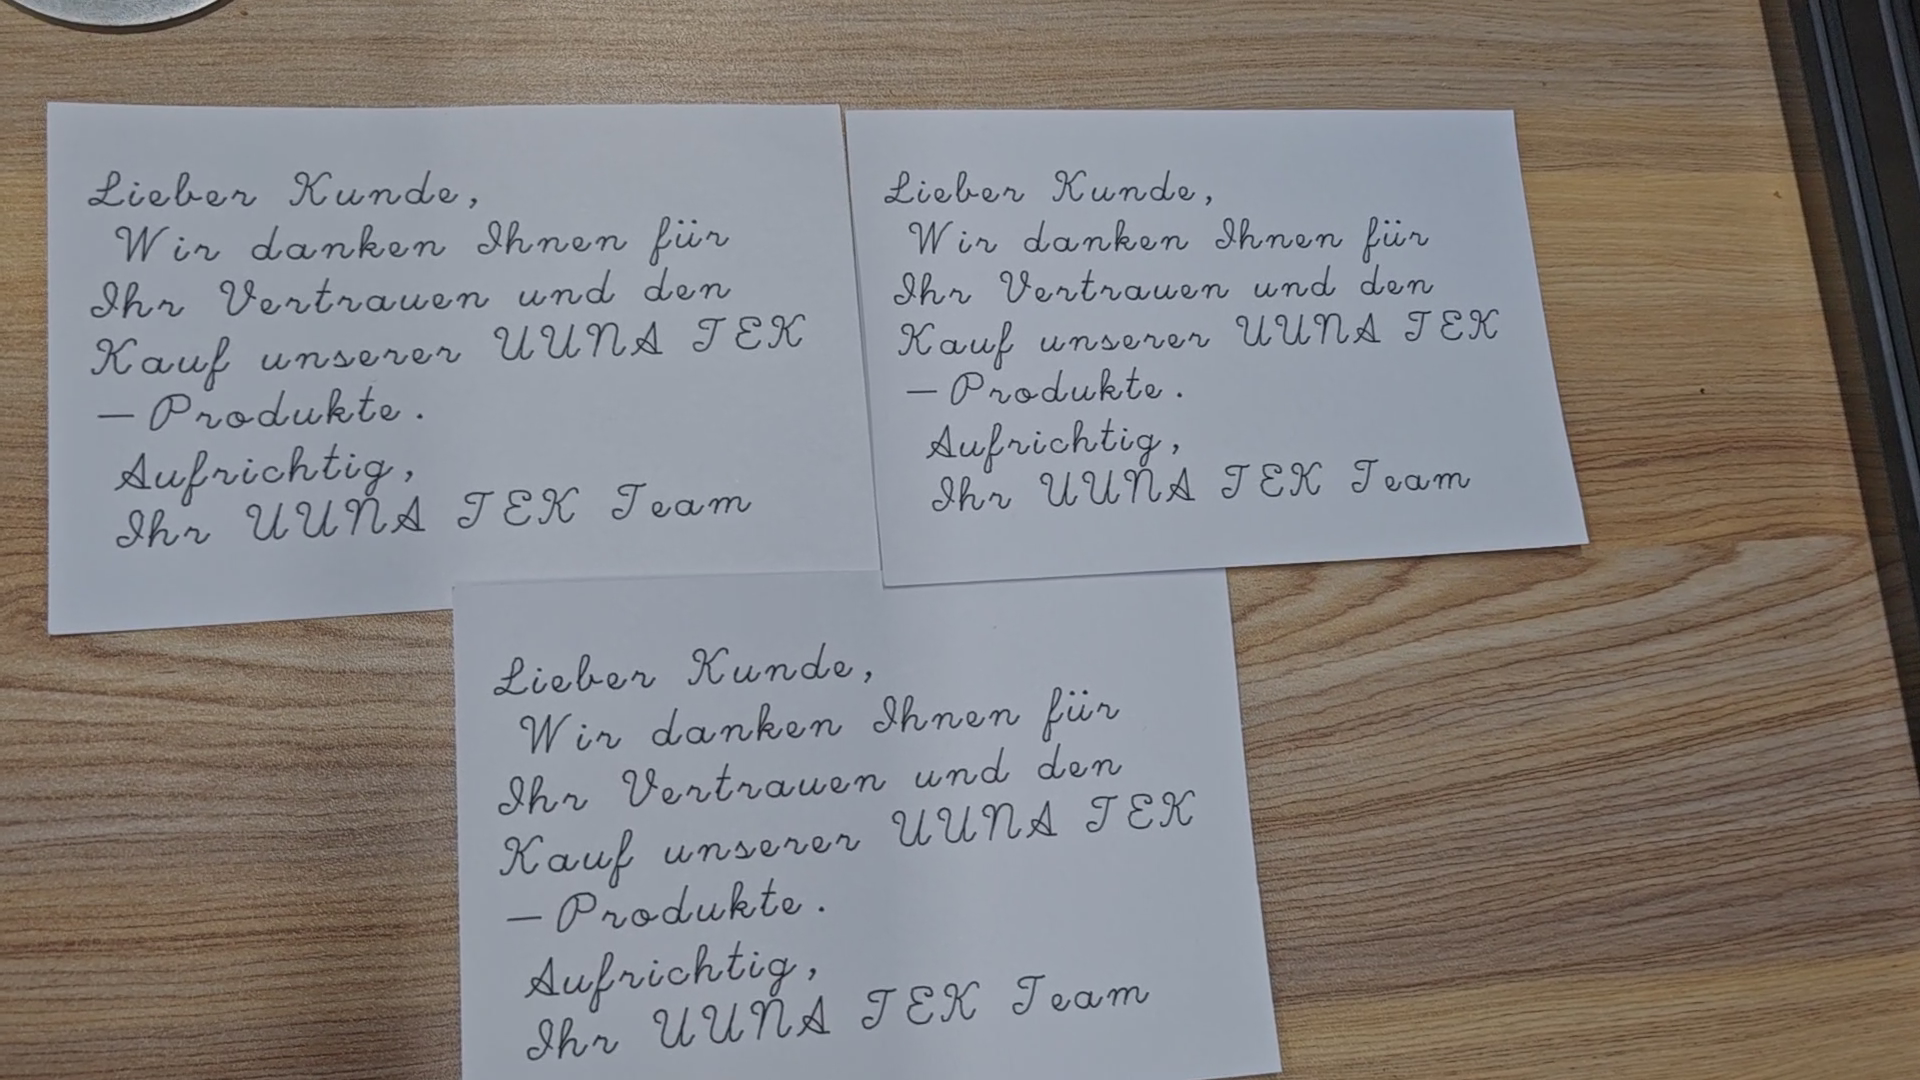 Lieber Kunde,
Wir danken Ihnen für
Ihr Vertrauen und den
Kauf unserer UUNA TEK
– Produkte.
Aufrichtig,
Ihr UUNA TEK Team
Lieber Kunde,
Wir danken Ihnen für
Ihr Vertrauen und den
Kauf unserer UUNA TEK
– Produkte.
Aufrichtig,
Ihr UUNA TEK Team
Lieber Kunde,
Wir danken Ihnen für
Ihr Vertrauen und den
Kauf unserer UUNA TEK
– Produkte.
Aufrichtig,
Ihr UUNA TEK Team